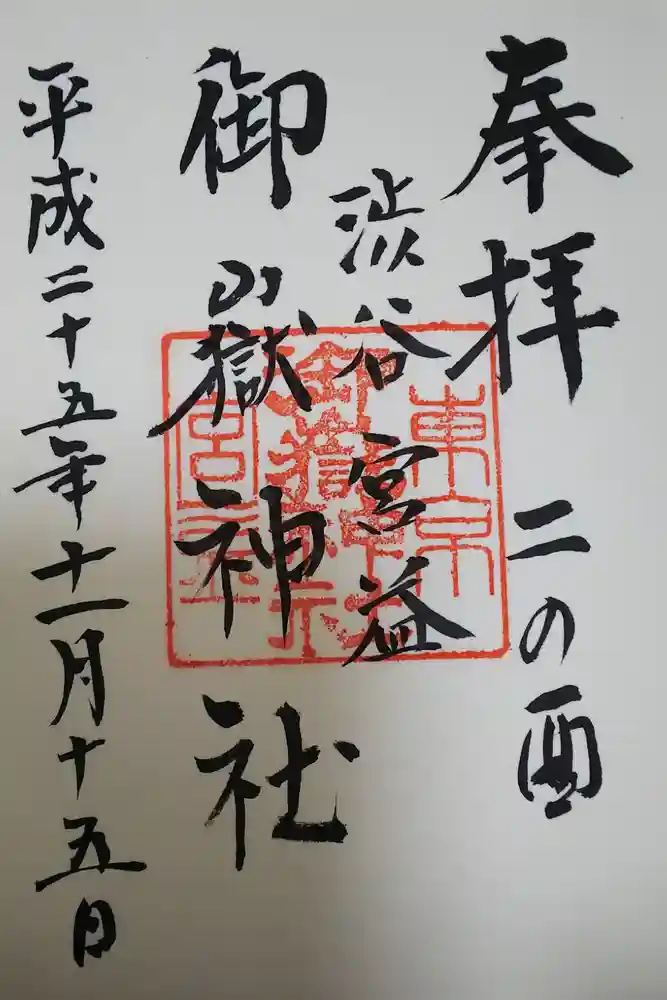 奉拝 二の酉
渋谷宮益
御嶽神社
平成二十五年十一月十五日
東京